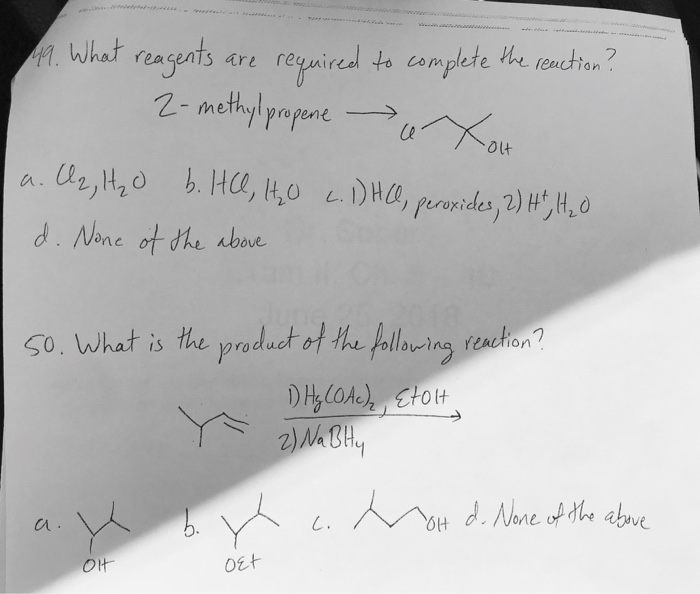 49. What reagents are required to complete the reaction?
2-methylpropene → Cl OH
a. Cl2, H2O b. HCl, H2O c. 1) HCl, peroxides, 2) H+, H2O
d. None of the above
50. What is the product of the following reaction?
1) Hg(OAc)2, EtOH
2) NaBH4
a. b. c. OH d. None of the above
OH OEt